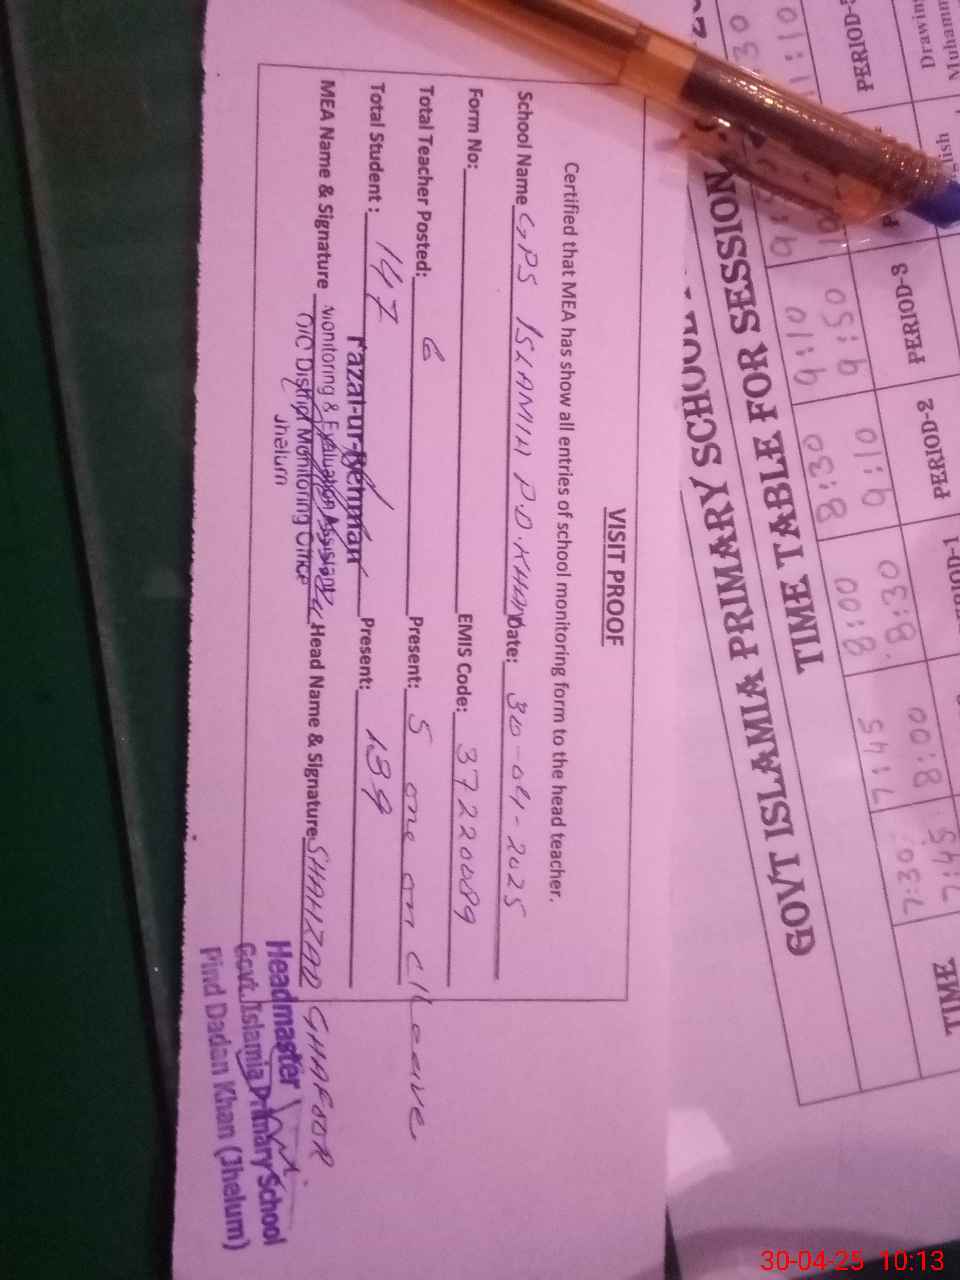 VISIT PROOF
Certified that MEA has show all entries of school monitoring form to the head teacher.
School Name GPS ISLAMIA P.D.KHAN Date: 30-04-2025
Form No: EMIS Code: 37220089
Total Teacher Posted: 6 Present: 5 one on c/leave
Total Student: 147 Present: 139
Fazal-ur-Rehman
MEA Name & Signature Monitoring & Evaluation Assistant Head Name & Signature: SHAHZAD GHAFOOR
O/O District Monitoring Office
Jhelum
Headmaster
Govt. Islamia Primary School
Pind Dadan Khan (Jhelum)
GOVT ISLAMIA PRIMARY SCHOOL
TIME TABLE FOR SESSION
TIME
7:30 7:45
7:45 8:00
8:00 8:30
8:30 9:10
9:10 9:50
PERIOD-2
PERIOD-3
Drawing
30-04-25 10:13